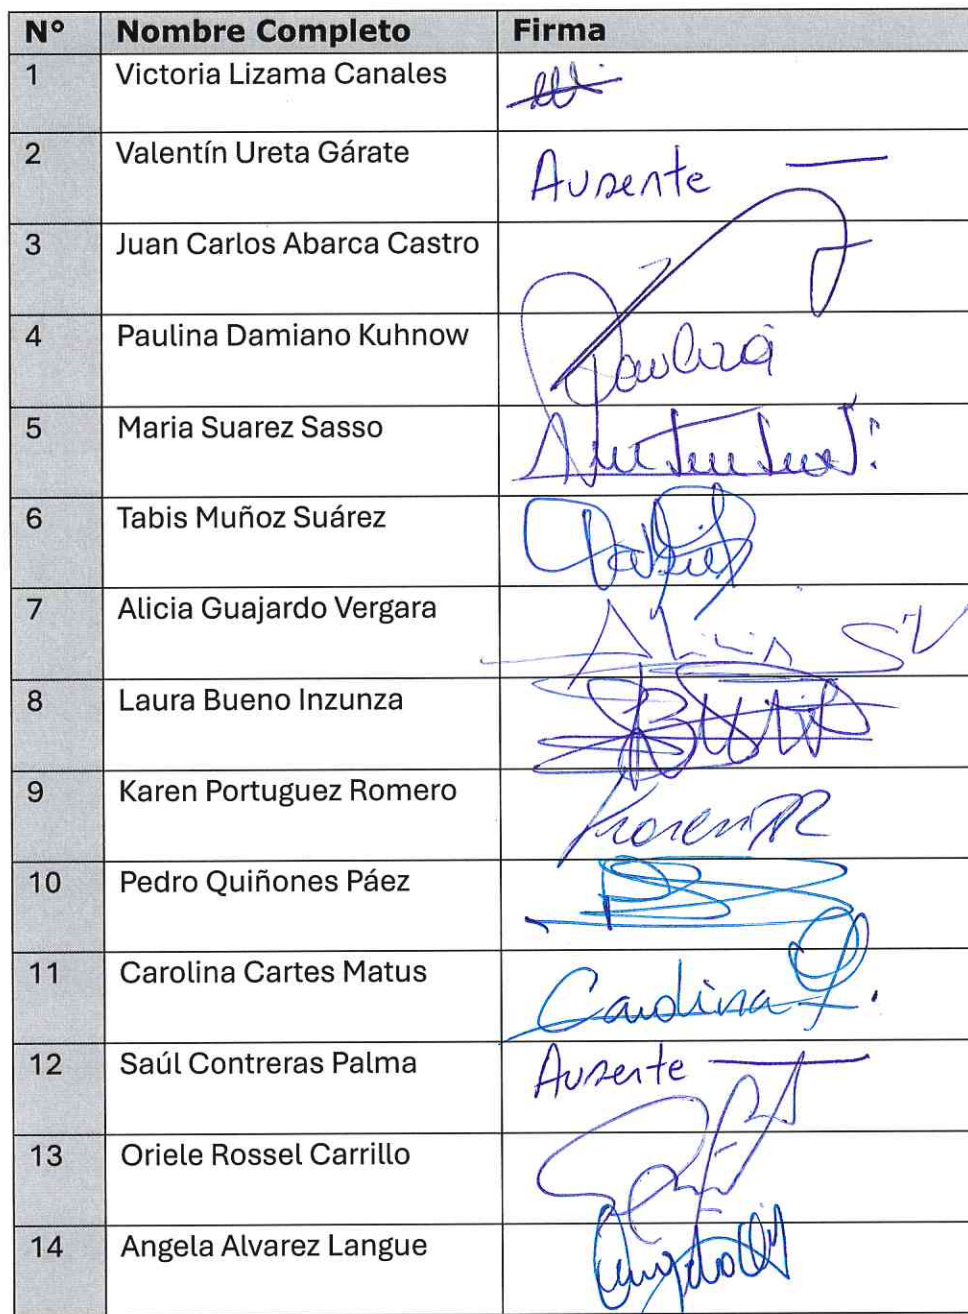 N° Nombre Completo Firma
1 Victoria Lizama Canales
2 Valentín Ureta Gárate Ausente
3 Juan Carlos Abarca Castro
4 Paulina Damiano Kuhnow Paulina
5 Maria Suarez Sasso
6 Tabis Muñoz Suárez
7 Alicia Guajardo Vergara
8 Laura Bueno Inzunza
9 Karen Portuguez Romero
10 Pedro Quiñones Páez
11 Carolina Cartes Matus Carolina
12 Saúl Contreras Palma Ausente
13 Oriele Rossel Carrillo
14 Angela Alvarez Langue